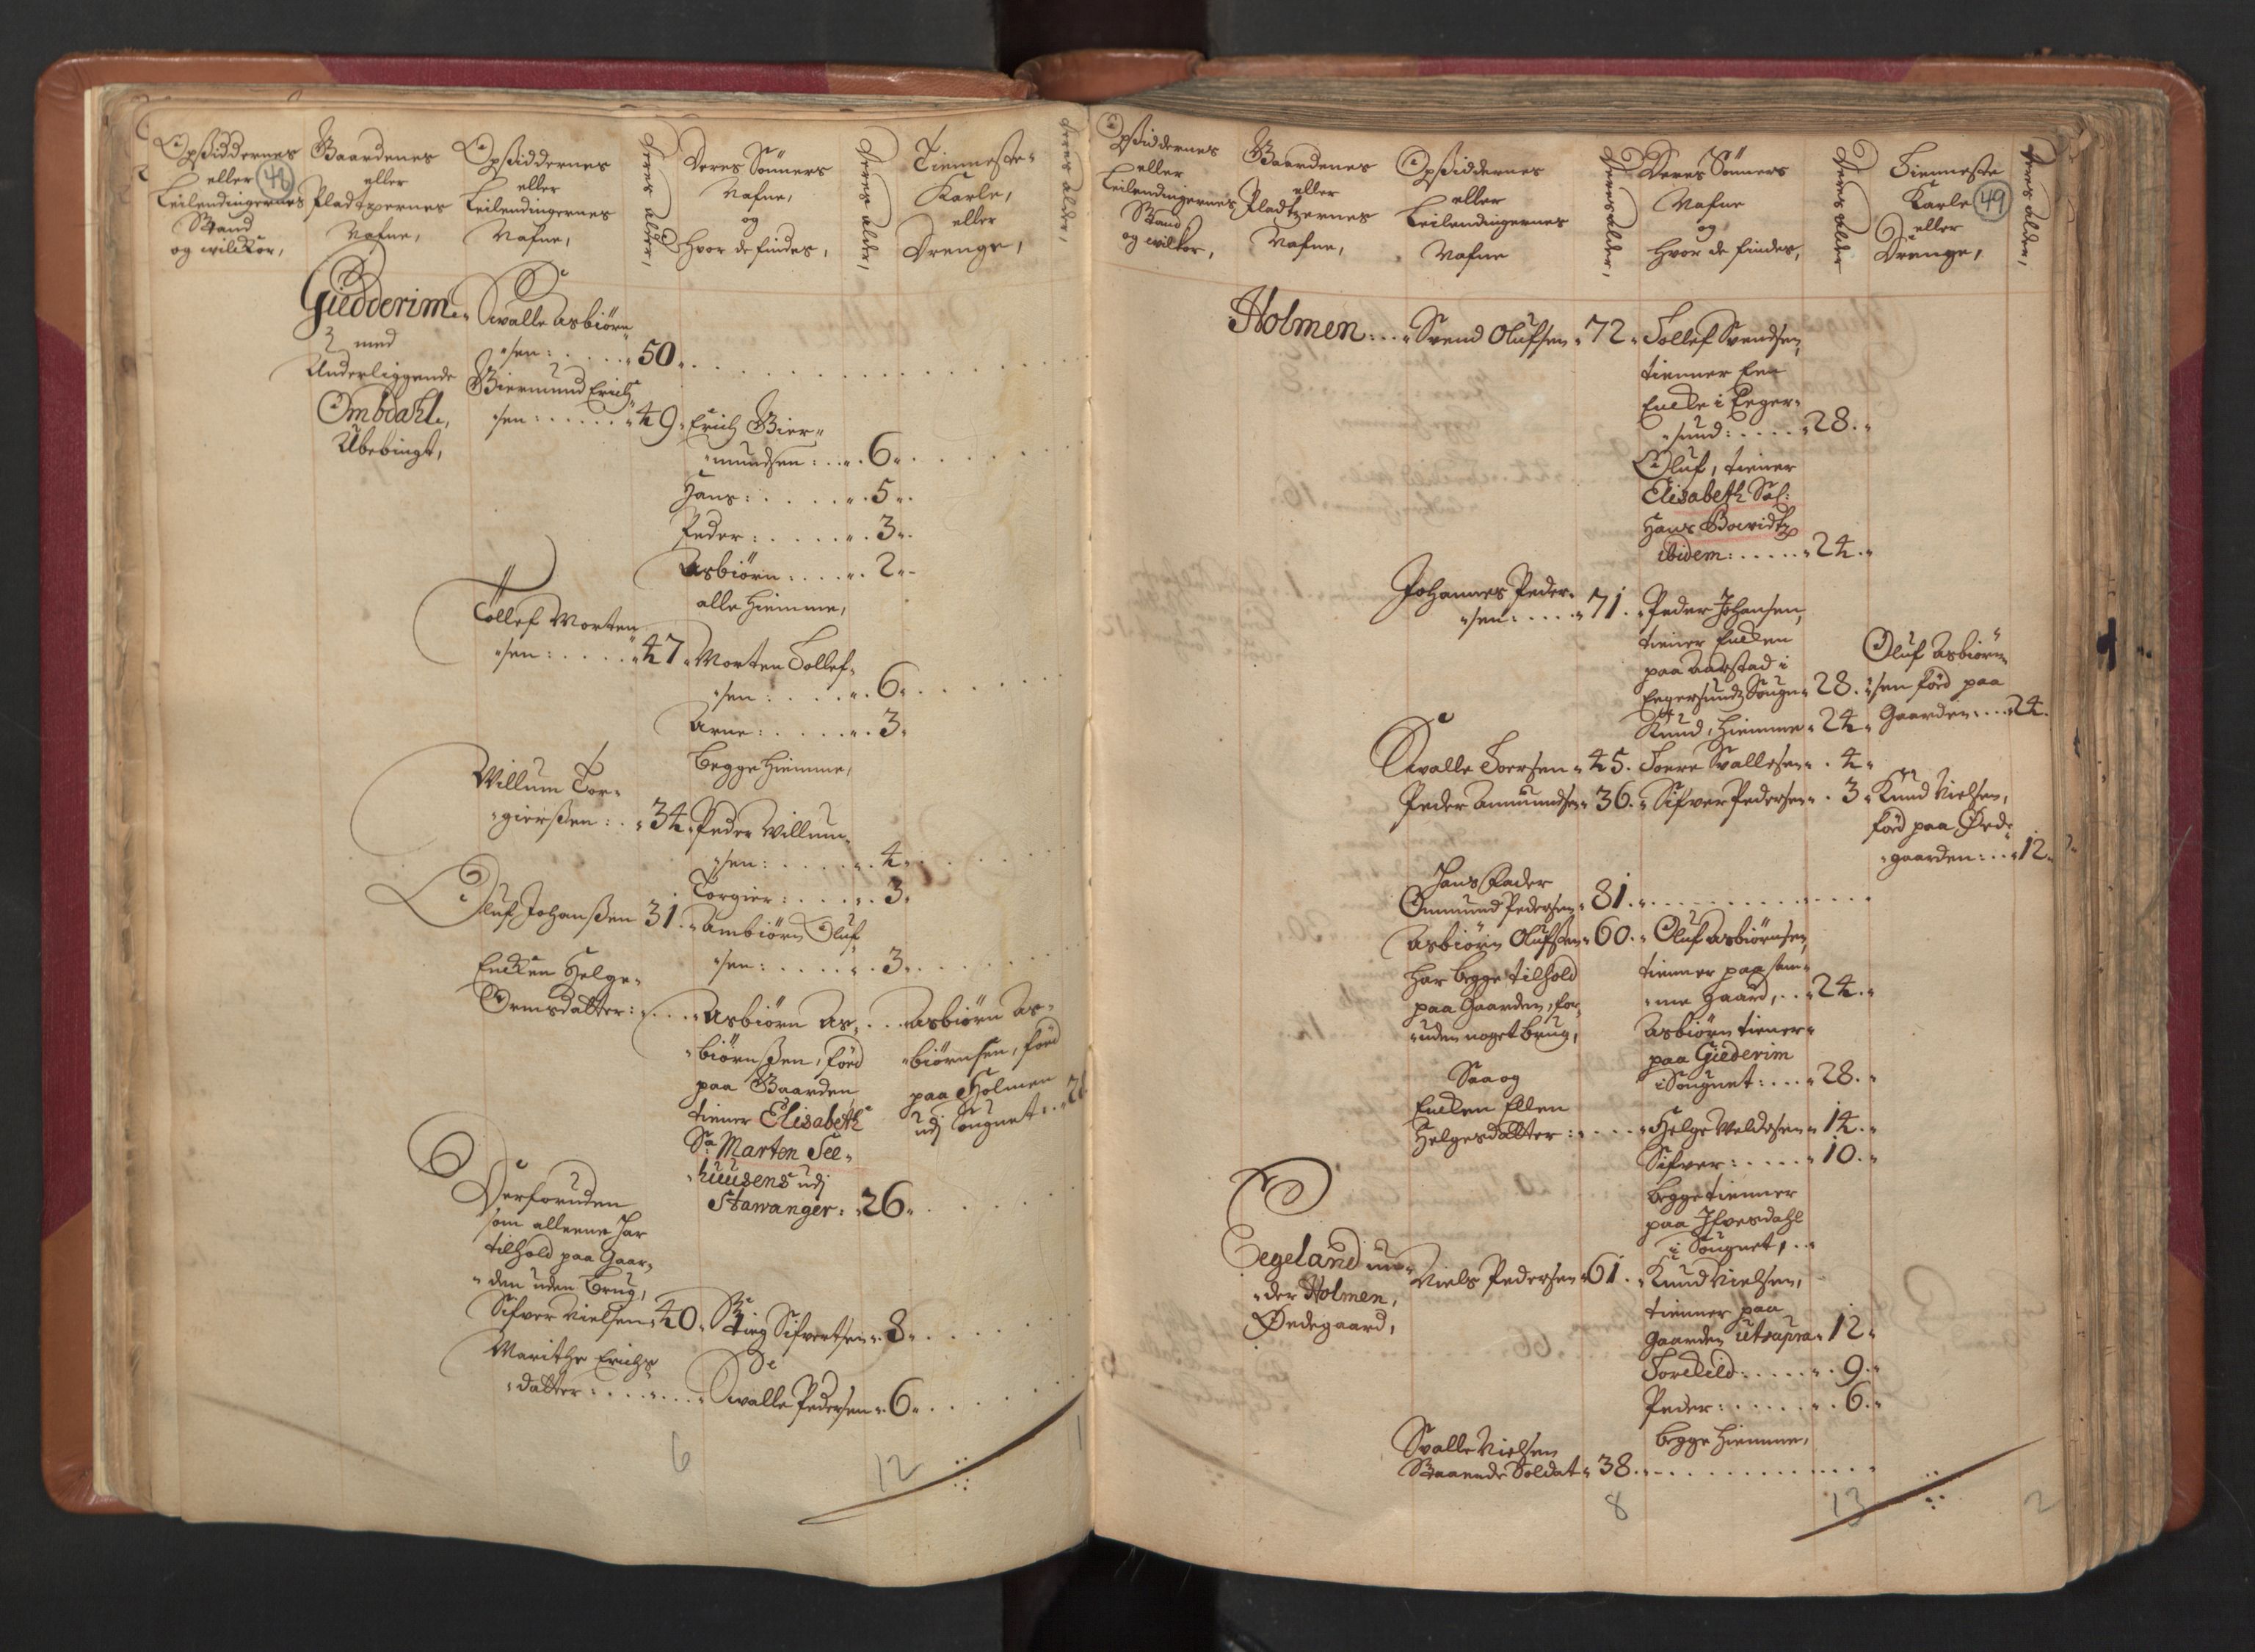 Opsiddernes
eller
Leilendingernes
Stand
og wilckor,
48
Gaardenes
eller
Pladtzernes
Nafne,
Opsiddernes
eller
Leilendingernes
Nafne,
Deres alder,
Deres Sönners
Nafne,
og
hvor de findes,
Deres alder,
Tienneste-
Karle,
eller
Drenge,
Deres alder,
Giedderim
med
Underliggende
Ombdahl,
Ubebingt,
Swalle Asbiörn
sen: 50
Biermund Erich
sen: 49
Erich Bier-
mundsen: 6
Hans: 5
Peder: 3
Asbiörn: 2
alle hiemme,
Tollef Morten
sen: 47
Morten Tollef-
sen: 6
Arne: 3
begge hiemme,
Willum Tor-
gierßen: 34
Peder Willum-
sen: 4
Torgier: 3
Oluf Johanßen 31
Ambiörn Oluf
sen: 3
Encken Helge-
Ormsdatter:
Asbiörn As-
biörnßen, föed
paa Gaarden
tiener Elisabeth
Sa: Marten See-
huusens udj
Stawanger: 26
Asbiörn As-
biörnsen, föed
paa Holmen
udj Sougnet: 2
Derforuden
som alleene har
tilhold paa Gaar-
den uden brug,
Sifver Nielsen 40
Stieg Sifvertsen 8
Marithe Erichs
datter:
Swalle Pedersen 6
6 12 1
Opsiddernes
eller
Leilendingernes
Stand
og wilkor,
Gaardenes
eller
Pladtzernes
Nafne,
Opsiddernes
eller
Leilendingernes
Nafne
Deres alder,
Deres Sönners
Nafne
og
hvor de findes,
Deres alder
Tienneste
Karle 49
eller
Drenge,
Deres alder,
Holmen:
Svend Olufsen 72
Tollef Svendsen,
tienner Een
Encke i Eeger-
sund: 28
Oluf, tiener
Elisabeth Sal:
Hans Bowidtz
ibidem: 24
Johannes Peder-
sen: 71
Peder Johansen,
tiener Encken
paa Aarstad i
Eegersundz Sougn 28
Knud, hiemme 24
Oluf Asbiörn-
sen föed paa
Gaarden 24
Swalle Torsen 45
Torre Svallesen 4
Peder Ammundsen 36
Sifver Pedersen 3
Knud Nielsen,
föed paa Øede
gaarden: 12
Hans Fader
Ommund Pedersen 81
Asbiörn Olufsen 60
har begge tilhold
paa Gaarden, for-
uden noget brug,
Oluf Asbiörnsen,
tienner paa sam-
me Gaard, 24
Asbiörn tiener
paa Giederim
i Sougnet: 28
Saa og
Encken Ellen
Helgesdatter:
Helge Veldesen 14
Sifver: 10
begge tienner
paa Ifvesdahl
i Sougnet,
Eegeland un-
der Holmen,
Ødegaard,
Niels Pedersen 61
Knud Nielsen,
tienner paa
Gaarden ut supra 12
Toreleld: 9
Peder: 6
begge hiemme,
Svalle Nielsen
Staaende Soldat 38
8 13 2